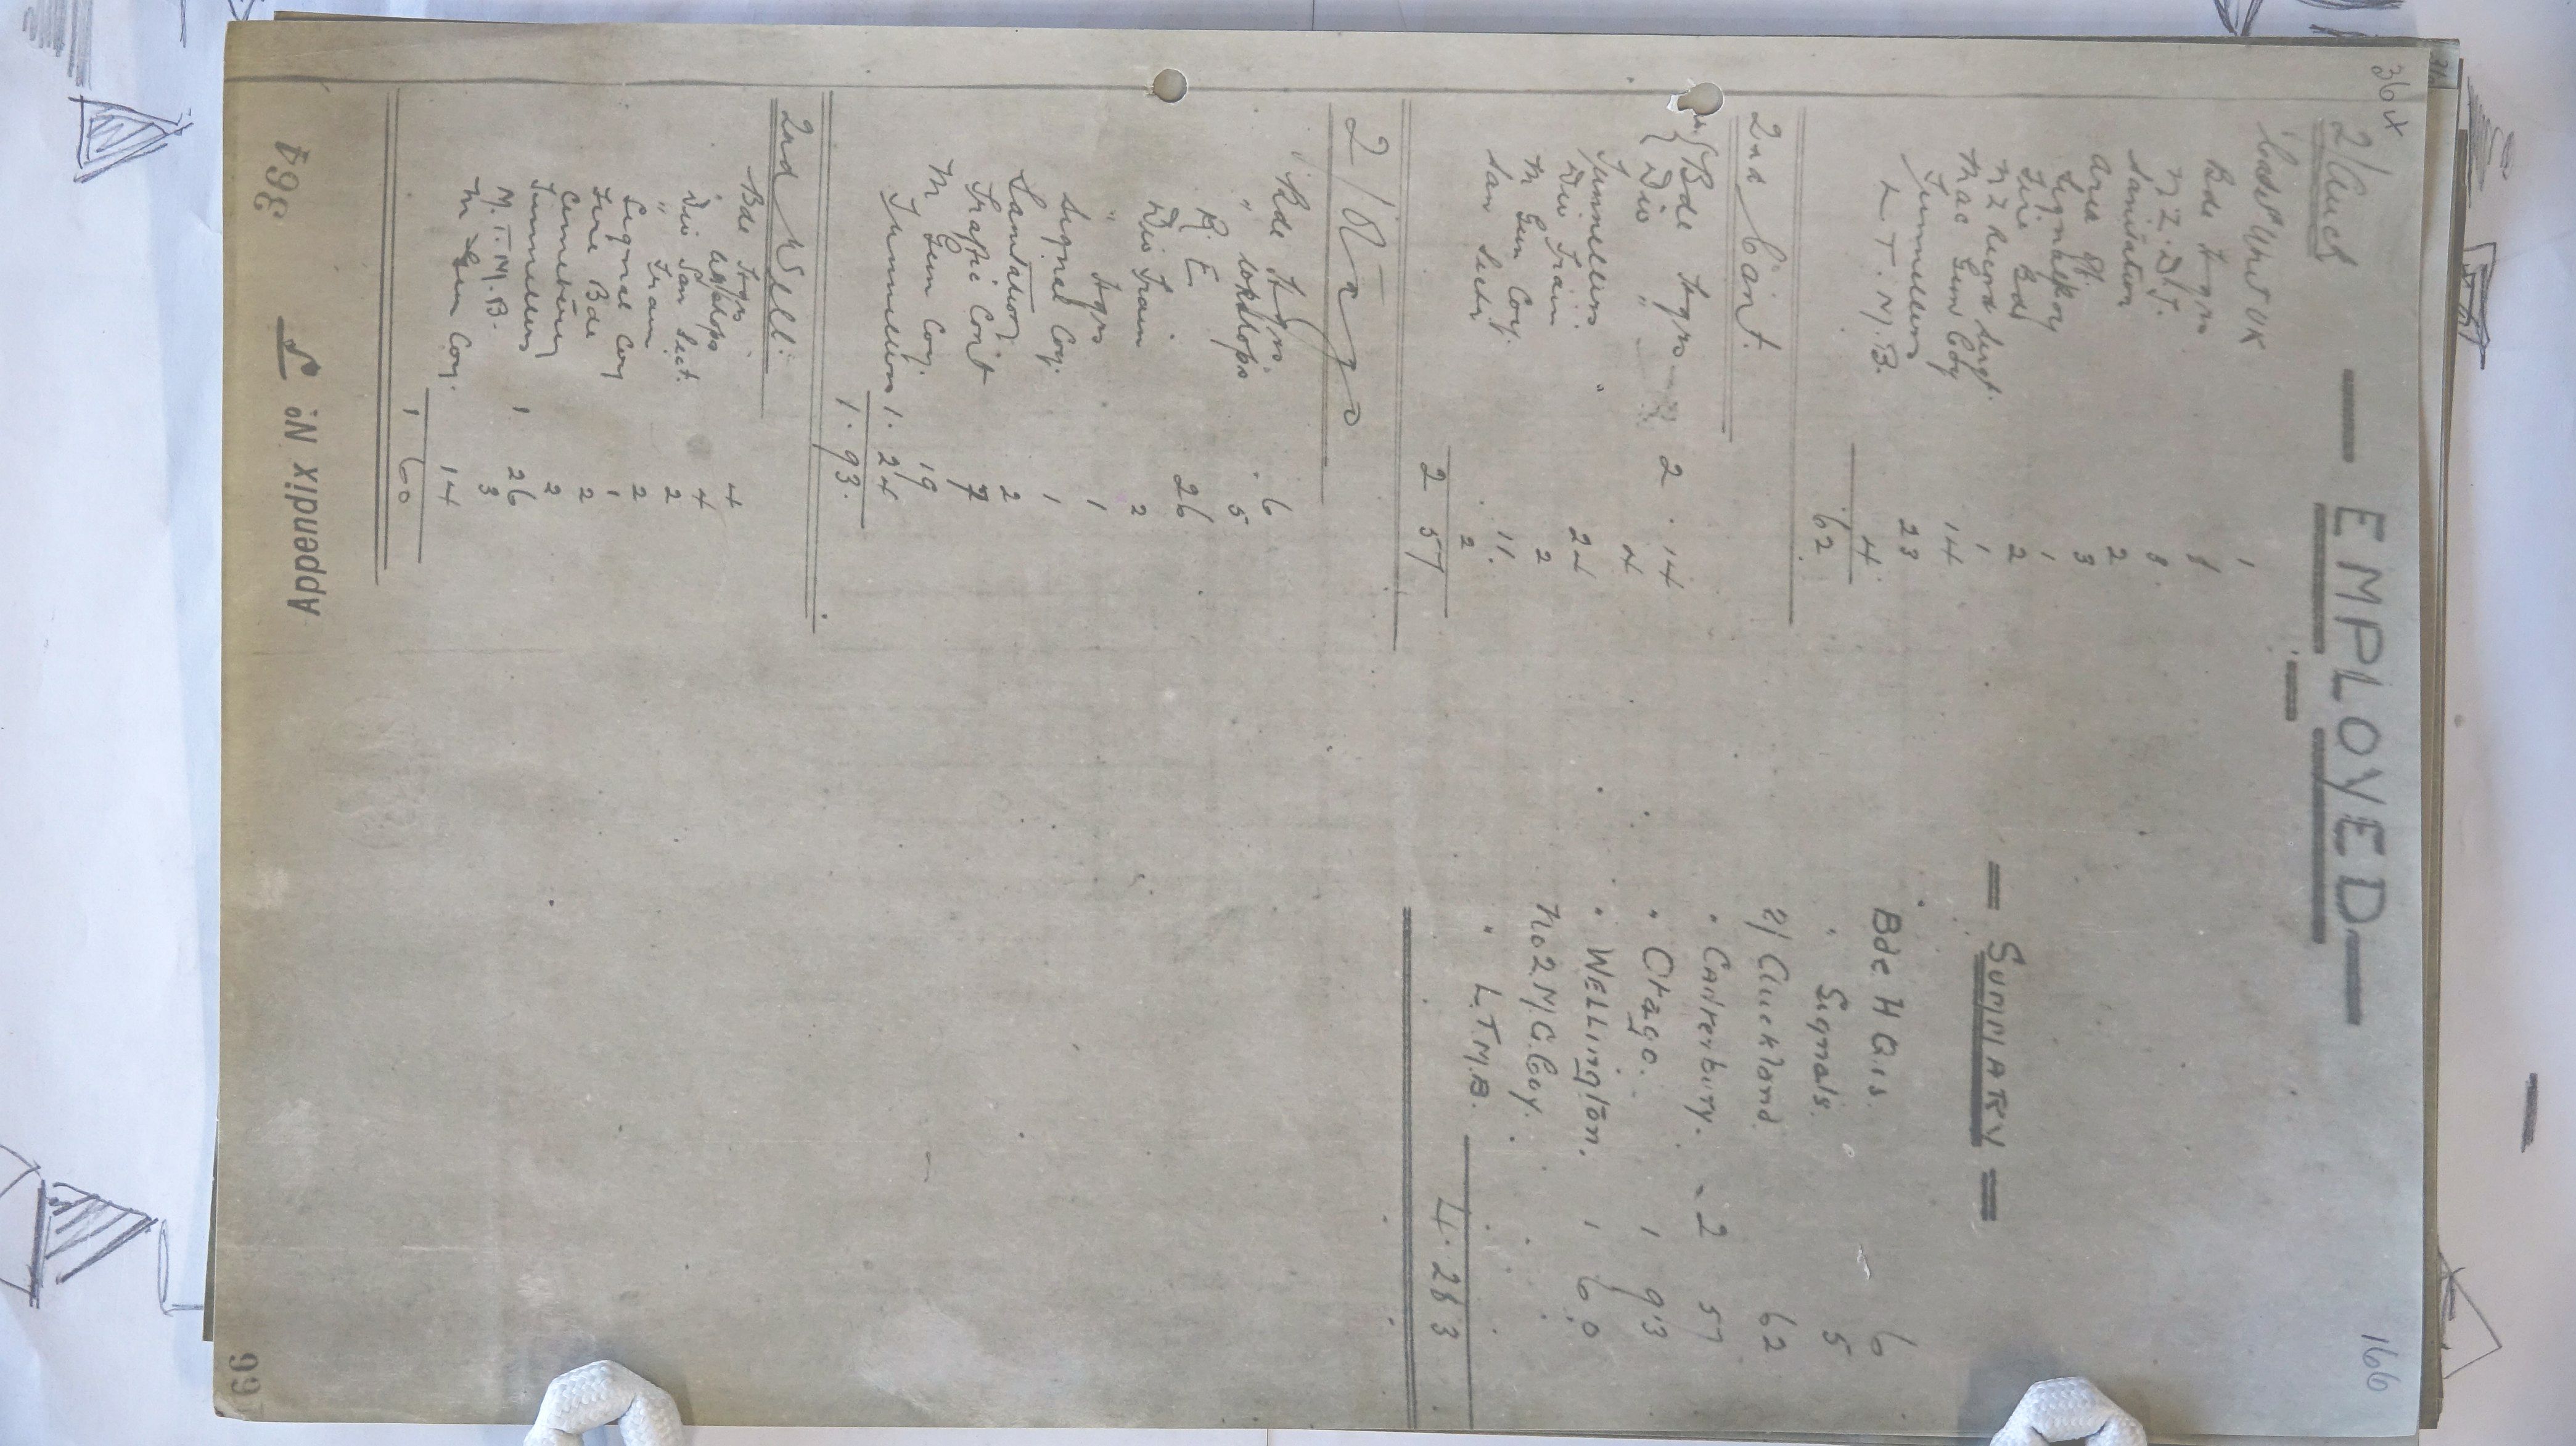 36 X
166
— EMPLOYED —
2/Auck
Bde Hqrs 8
N.Z.D.S. 8
Sanitation 2
Area Off. 3
Signal Coy 1
Fire Bde 2
NZ Record Sergt. 1
Mac Gun Coy 14
Tunnellers 23
L.T.M.B. 4
62
2nd Cant.
Bde Hqrs 2 14
Div " 4
Tunnellers 24
Div Train 2
M Gun Coy. 11
San Sectn 2
2 57
2/Otago
Bde Hqrs. 6
" wkshops 5
R.E. 26
Div Train 2
" Hqrs 1
Signal Coy. 1
Sanitation 2
Traffic Cont 7
M Gun Coy. 19
Tunnellers 1. 24
1. 93.
2nd Well:
Bde Hqrs 4
" wkshops 4
Div San Sect. 2
" Train 2
Signal Coy 1
Fire Bde 2
Cemetery 2
Tunnellers 1 26
M.T.M.B. 3
M Gun Coy. 14
1 60
= SUMMARY =
Bde H Qrs. 6
" Signals. 5
2/ Auckland 62
" Canterbury. 2 57
" Otago. 1 93
" Wellington. 1 60
No 2 M/G. Coy.
" L.T.M.B.
4. 283
Appendix No: 5
394